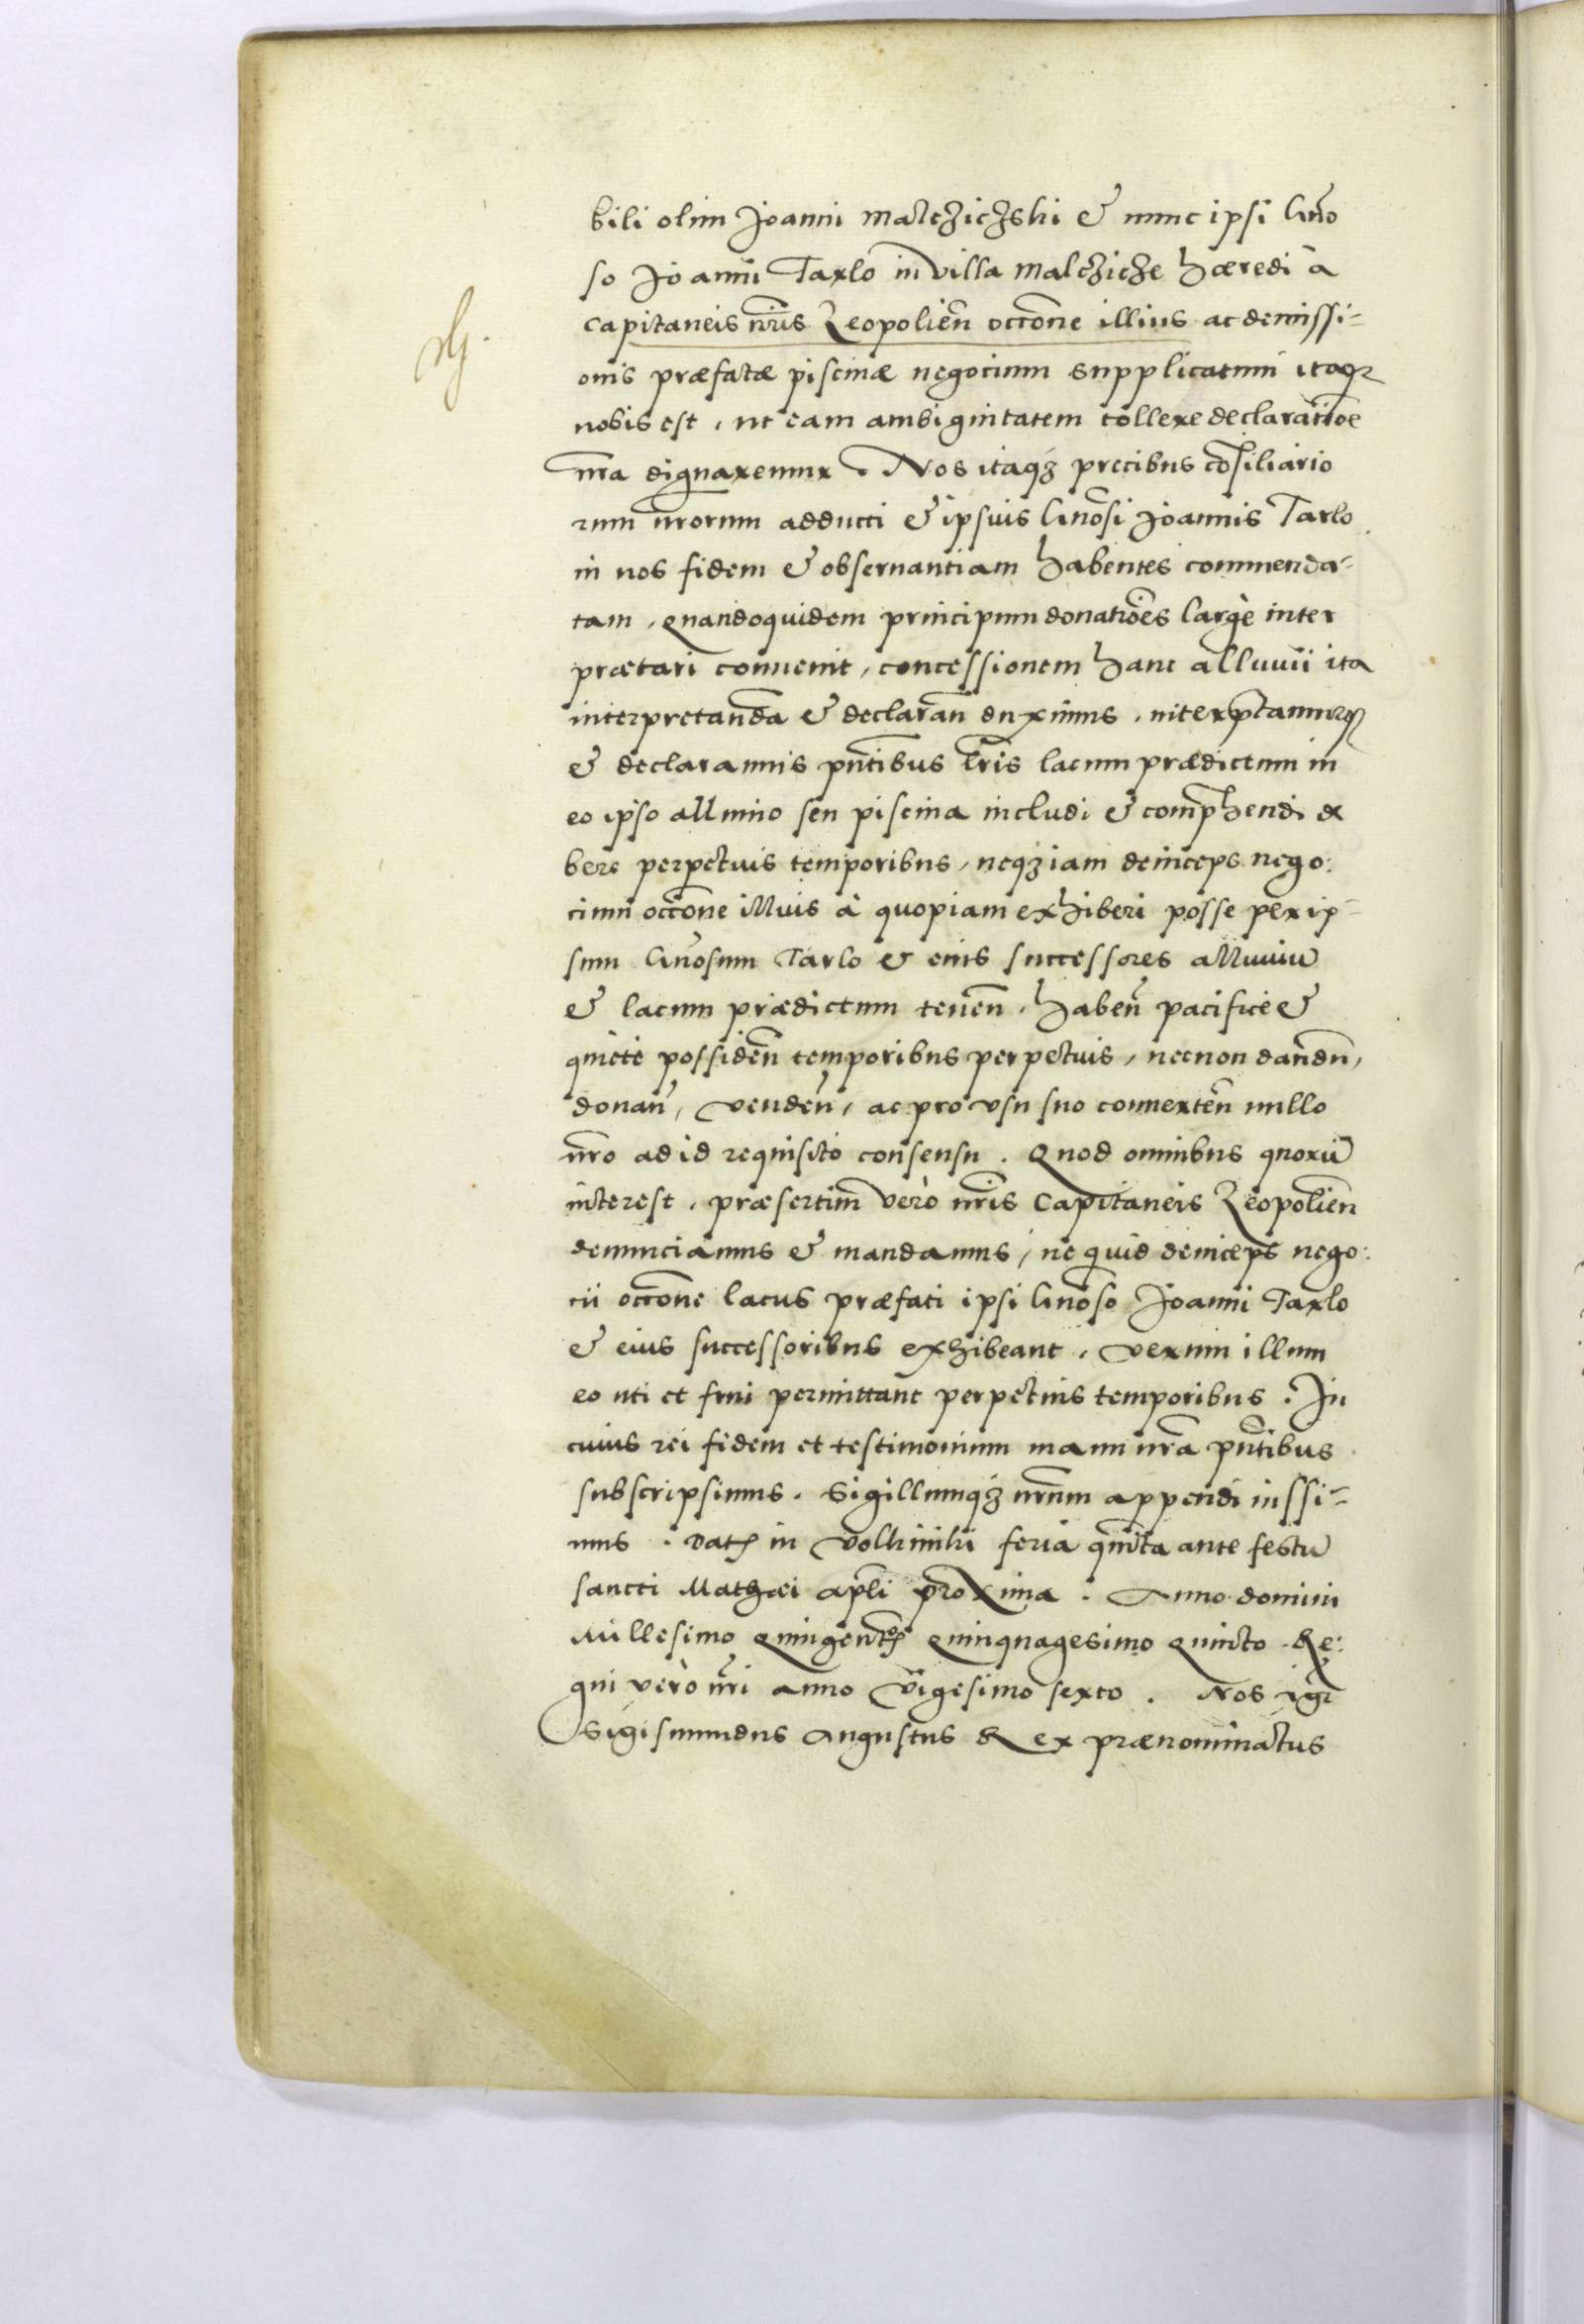 bili olim Joanni Malchichski & nunc ipsi Gnõ
so Joanni Tarlo in villa Malchiche hæredi à
Capitaneis nris Leopolieñ occõne illius ac demissi-
onis præfatæ piscinæ negocium supplicatum itaq3
nobis est, ut eam ambiguitatem tollere declaratiõe
nrã dignaremur. Nos itaq3 precibus cõsiliario
rum nrorum adducti & ipsius Gnõsi Joannis Tarlo
in nos fidem & obseruantiam habentes commenda-
tam, quandoquidem principum donatiões largè inter
prætari conuenit, concessionem hanc alluuii ita
interpretanda & declarañ duximus, interptamurq3
& declaramus pñtibus lris lacum prædictum in
eo ipso alluuio seu piscina includi & comphendi de
bere perpetuis temporibus, neq3 iam deinceps nego:
cium occõne illius à quopiam exhiberi posse per ip-
sum Gnõsum Tarlo & eius successores alluuiũ
& lacum prædictum teneñ, habeñ pacifice &
quiete possideñ temporibus perpetuis, necnon dandñ,
donañ, vendeñ, ac pro vsu suo conuerteñ nullo
nro ad id requisito consensu. Quod omnibus quorũ
interest, præsertim verò nris Capitaneis Leopolieñ
denunciamus & mandamus, ne quid deinceps nego:
cii occõne lacus præfati ipsi Gnõso Joanni Tarlo
& eius successoribus exhibeant, verum illum
eo uti et frui permittant perpetuis temporibus. In
cuius rei fidem et testimonium manu nrã pñtibus
subscripsimus. Sigillumq3 nrum appendi iussi-
mus. Dat in Volkiniki feria quinta ante festũ
sancti Mathæi apli proxima. Anno domini
Millesimo quingent quinquagesimo quinto. Re:
gni verò nri anno vigesimo sexto. Nos igr
Sigismundus Augustus Rex prænominatus